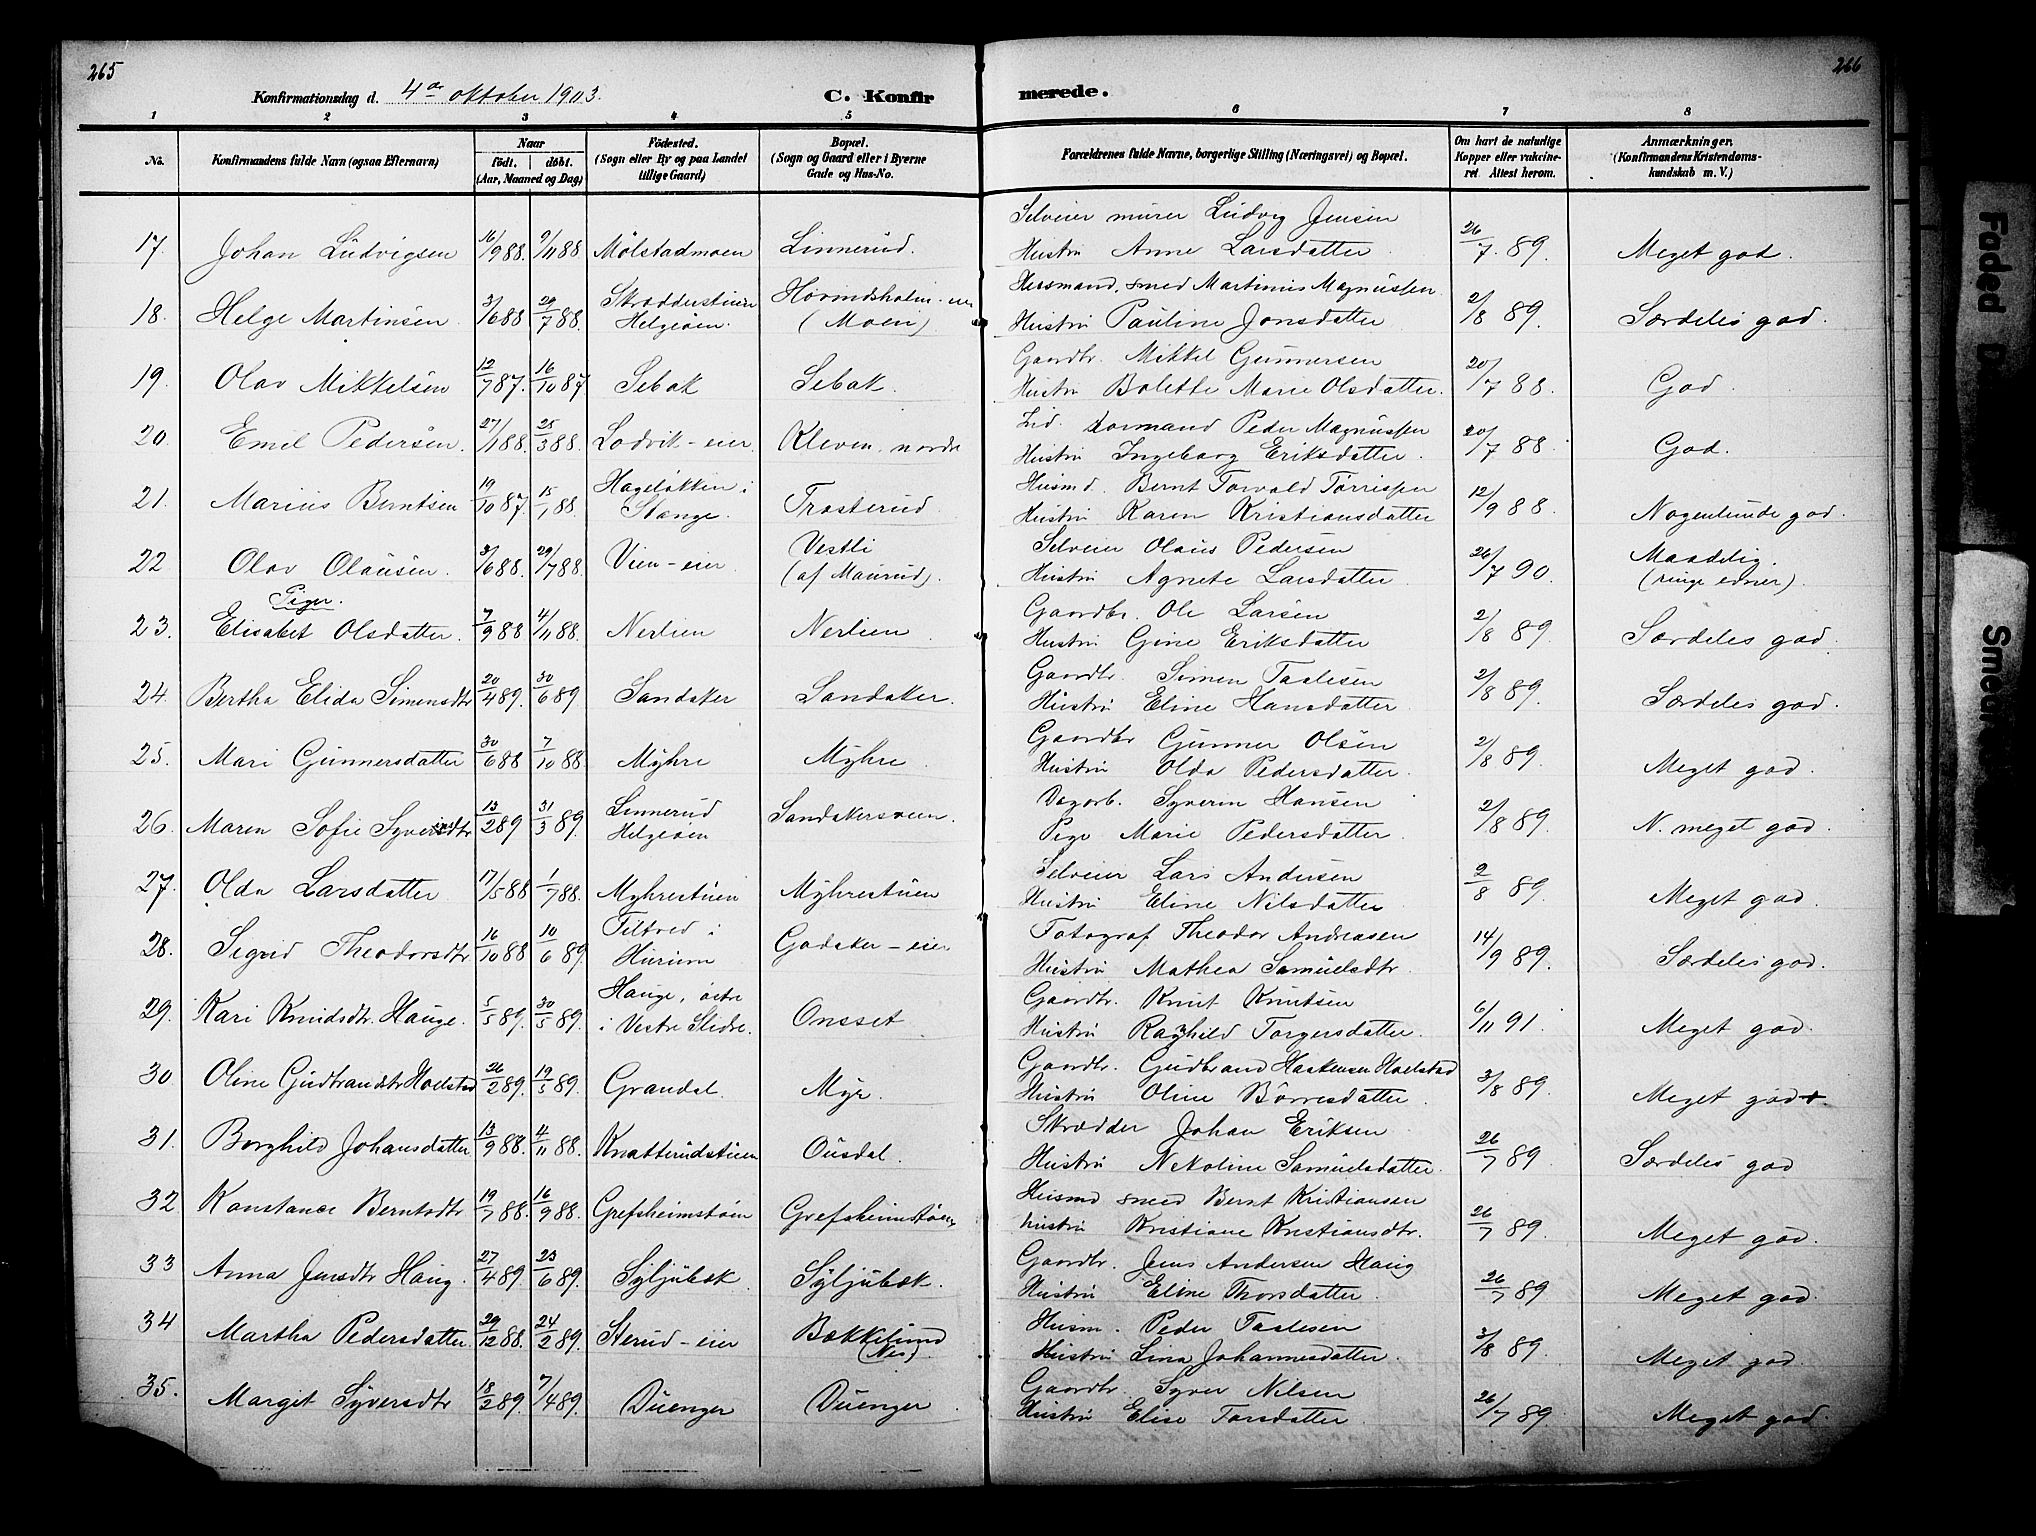 265
266
Konfirmationsdag d. 4de oktober 1903.
C. Konfirmerede.
1 2 3 4 5 6 7 8
No.
Konfirmandens fulde Navn (ogsaa Efternavn)
Naar
født. døbt.
(Aar, Maaned og Dag)
Fødested.
(Sogn eller By og paa Landet
tillige Gaard)
Bopæl.
(Sogn og Gaard eller i Byerne
Gade og Hus-No.
Forældrenes fulde Navne, borgerlige Stilling (Næringsvei) og Bopæl.
Om havt de naturlige
Kopper eller vakcine-
ret Attest herom.
Anmærkninger.
(Konfirmandens Kristendoms-
kundskab m. V.)
17. Johan Ludvigsen 16/9 88. 9/11 88. Mølstadmoen Linnerud. Selveier murer Ludvig Jensen
Hustru Anne Larsdatter. 26/7 89. Meget god.
18. Helge Martinsen. 3/6 88 29/7 88. Skrædderstuen Helgeøen. Hovindsholm-eier (Moen) Husmand, smed Martinus Magnussen
Hustru Pauline Jonsdatter 2/8 89. Særdeles god.
19. Olav Mikkelsen 12/7 87. 16/10 87 Sebak Sebak. Gaardbr. Mikkel Gunnersen
Hustru Bolette Marie Olsdatter. 20/7 88. God.
20. Emil Pedersen. 27/1 88. 25/3 88. Lodvik-eier. Kleven nordre Lid. Formand Peder Magnussen
Hustru Ingeborg Eriksdatter. 20/7 88. God.
21. Marius Berntsen 19/10 87. 15/1 88. Hageløkken i Stange. Trosterud. Husmd. Bernt Torvald Torrissen
Hustru Karen Kristiansdatter 12/9 88. Nogenlunde god.
22 Olav Olausen. 3/6 88. 29/7 88. Vien-eier. Vestli (af Maurud). Selveier Olaus Pedersen
Hustru Agnete Larsdatter. 26/7 90. Maadelig. (ringe evner).
Piger.
23. Elisabet Olsdatter. 7/9 88 4/11 88. Nerlien Nerlien. Gaardbr. Ole Larsen
Hustru Gine Eriksdatter 2/8 89. Særdeles god.
24. Bertha Elida Simensdtr 20/4 89. 30/6 89 Sandaker Sandaker. Gaardbr. Simen Taalesen
Hustru Eline Hansdatter. 2/8 89. Særdeles god.
25. Mari Gunnersdatter 30/6 88 7/10 88. Myhre Myhre. Gaardbr Gunner Olsen
Hustru Olda Pedersdatter. 2/8 89. Meget god.
26. Maren Sofie Syverinsdtr 13/2 89 31/3 89. Linnerud Helgeøen Sandakersveen. Dagarb. Syverin Hansen
Pige Marie Pedersdatter. 2/8 89. N. meget god.
27. Olda Larsdatter 17/5 88 1/7 88. Myhrestuen Myhrestuen Selveier Lars Andersen
Hustru Eline Nilsdatter 2/8 89. Meget god.
28. Sigrid Theodorsdtr 16/10 88 10/6 89. Tiltved i Hurum Godaker-eier Fotograf Theodor Andreasen
Hustru Mathea Samuelsdtr. 14/9 89. Særdeles god.
29. Kari Knudsdtr. Hauge. 5/5 89. 30/5 89. Hauge, østre i Vestre Slidre. Onsset. Gaardbr. Knut Knutsen
Hustru Raghild Torgersdatter. 6/11 91. Meget god.
30. Oline Gudbrandsdtr Hoelstad 26/2 89. 19/5 89. Grandal. Myr. Gaardbr. Gudbrand Haakensen Hoelstad
Hustru Oline Børresdatter. 3/8 89. Meget god.
31. Borghild Johansdatter 13/9 88. 4/11 88. Knatterudstuen Ousdal. Skrædder Johan Eriksen
Hustru Nikoline Samuelsdatter. 26/7 89. Særdeles god
32 Konstance Berntsdtr 19/7 88. 16/9 88. Grefsheimstøen Grefsheimstøen Husmd smed Bernt Kristiansen
Hustru Kristiane Kristiansdtr. 26/7 89. Meget god.
33 Anna Jensdtr Haug. 27/4 89. 23/6 89. Syljubæk Syljubæk. Gaardbr. Jens Andersen Haug
Hustru Eline Thorsdatter. 26/7 89 Meget god.
34 Martha Pedersdatter 29/12 88. 24/2 89. Sterud-eier Bækkelund (Nes). Husm. Peder Taalesen
Hustru Lina Johannesdatter. 3/8 89. Meget god.
35. Margit Syversdtr 18/2 89. 7/4 89. Duenger Duenger. Gaardbr. Syver Nilsen
Hustru Elise Torsdatter. 26/7 89. Meget god.
Faded D